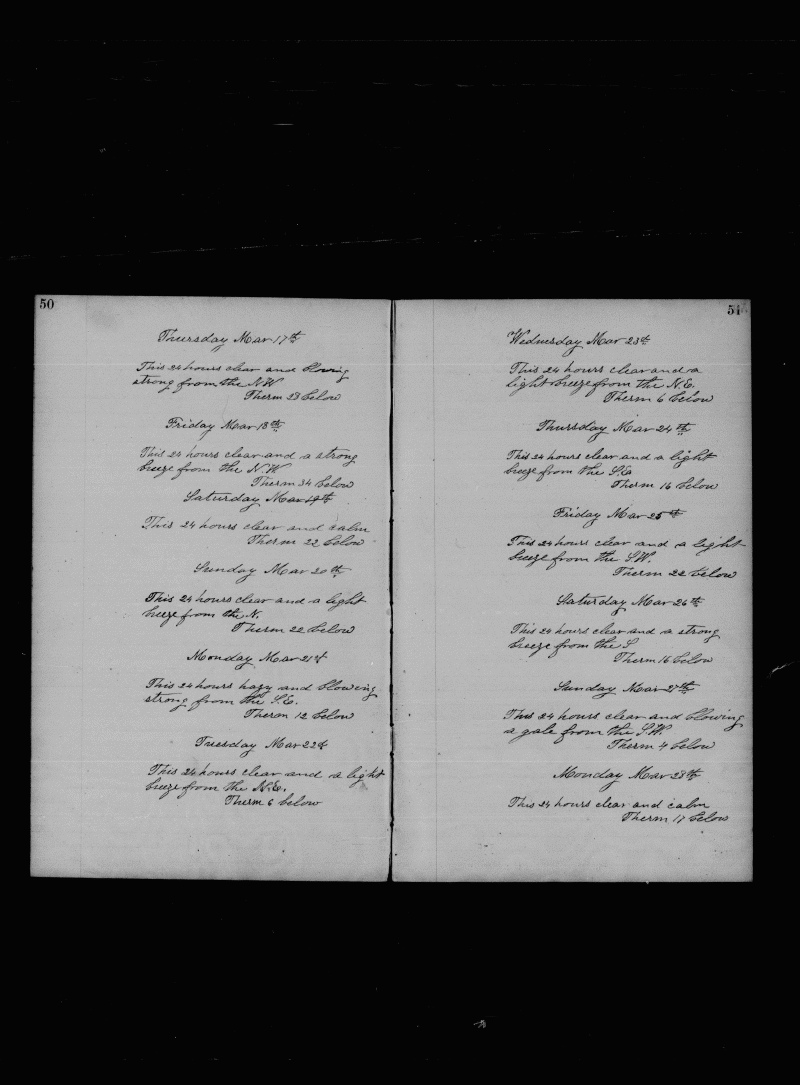 50
Thursday Mar 17th
This 24 hours clear and blowing
strong from the N.W
Therm 28 below
Friday Mar 18th
This 24 hours clear and a strong
breeze from the N.W
Therm 34 below
Saturday Mar 19th
This 24 hours clear and calm
Therm 22 below
Sunday Mar 20th
This 24 hours clear and a light
breeze from the N.
Therm 22 below
Monday Mar 21st
This 24 hours hazy and blowing
strong from the S.E.
Therm 12 below
Tuesday Mar 22d
This 24 hours clear and a light
breeze from the N.E.
Therm 6 below
51
Wednesday Mar 23d
This 24 hours clear and a
light breeze from the N.E.
Therm 6 below
Thursday Mar 24th
This 24 hours clear and a light
breeze from the
Therm 16 below
Friday Mar 25th
This 24 hours clear and a light
breeze from the S.W.
Therm 22 below
Saturday Mar 26th
This 24 hours clear and a strong
breeze from the S
Therm 16 below
Sunday Mar 27th
This 24 hours clear and blowing
a gale from the S.W.
Therm 4 below
Monday Mar 28th
This 24 hours clear and calm
Therm 17 below